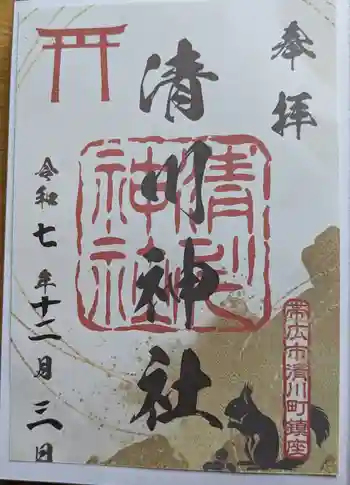 奉拝
清川神社
清川神社
令和七年十二月三日
帯広市清川町鎮座